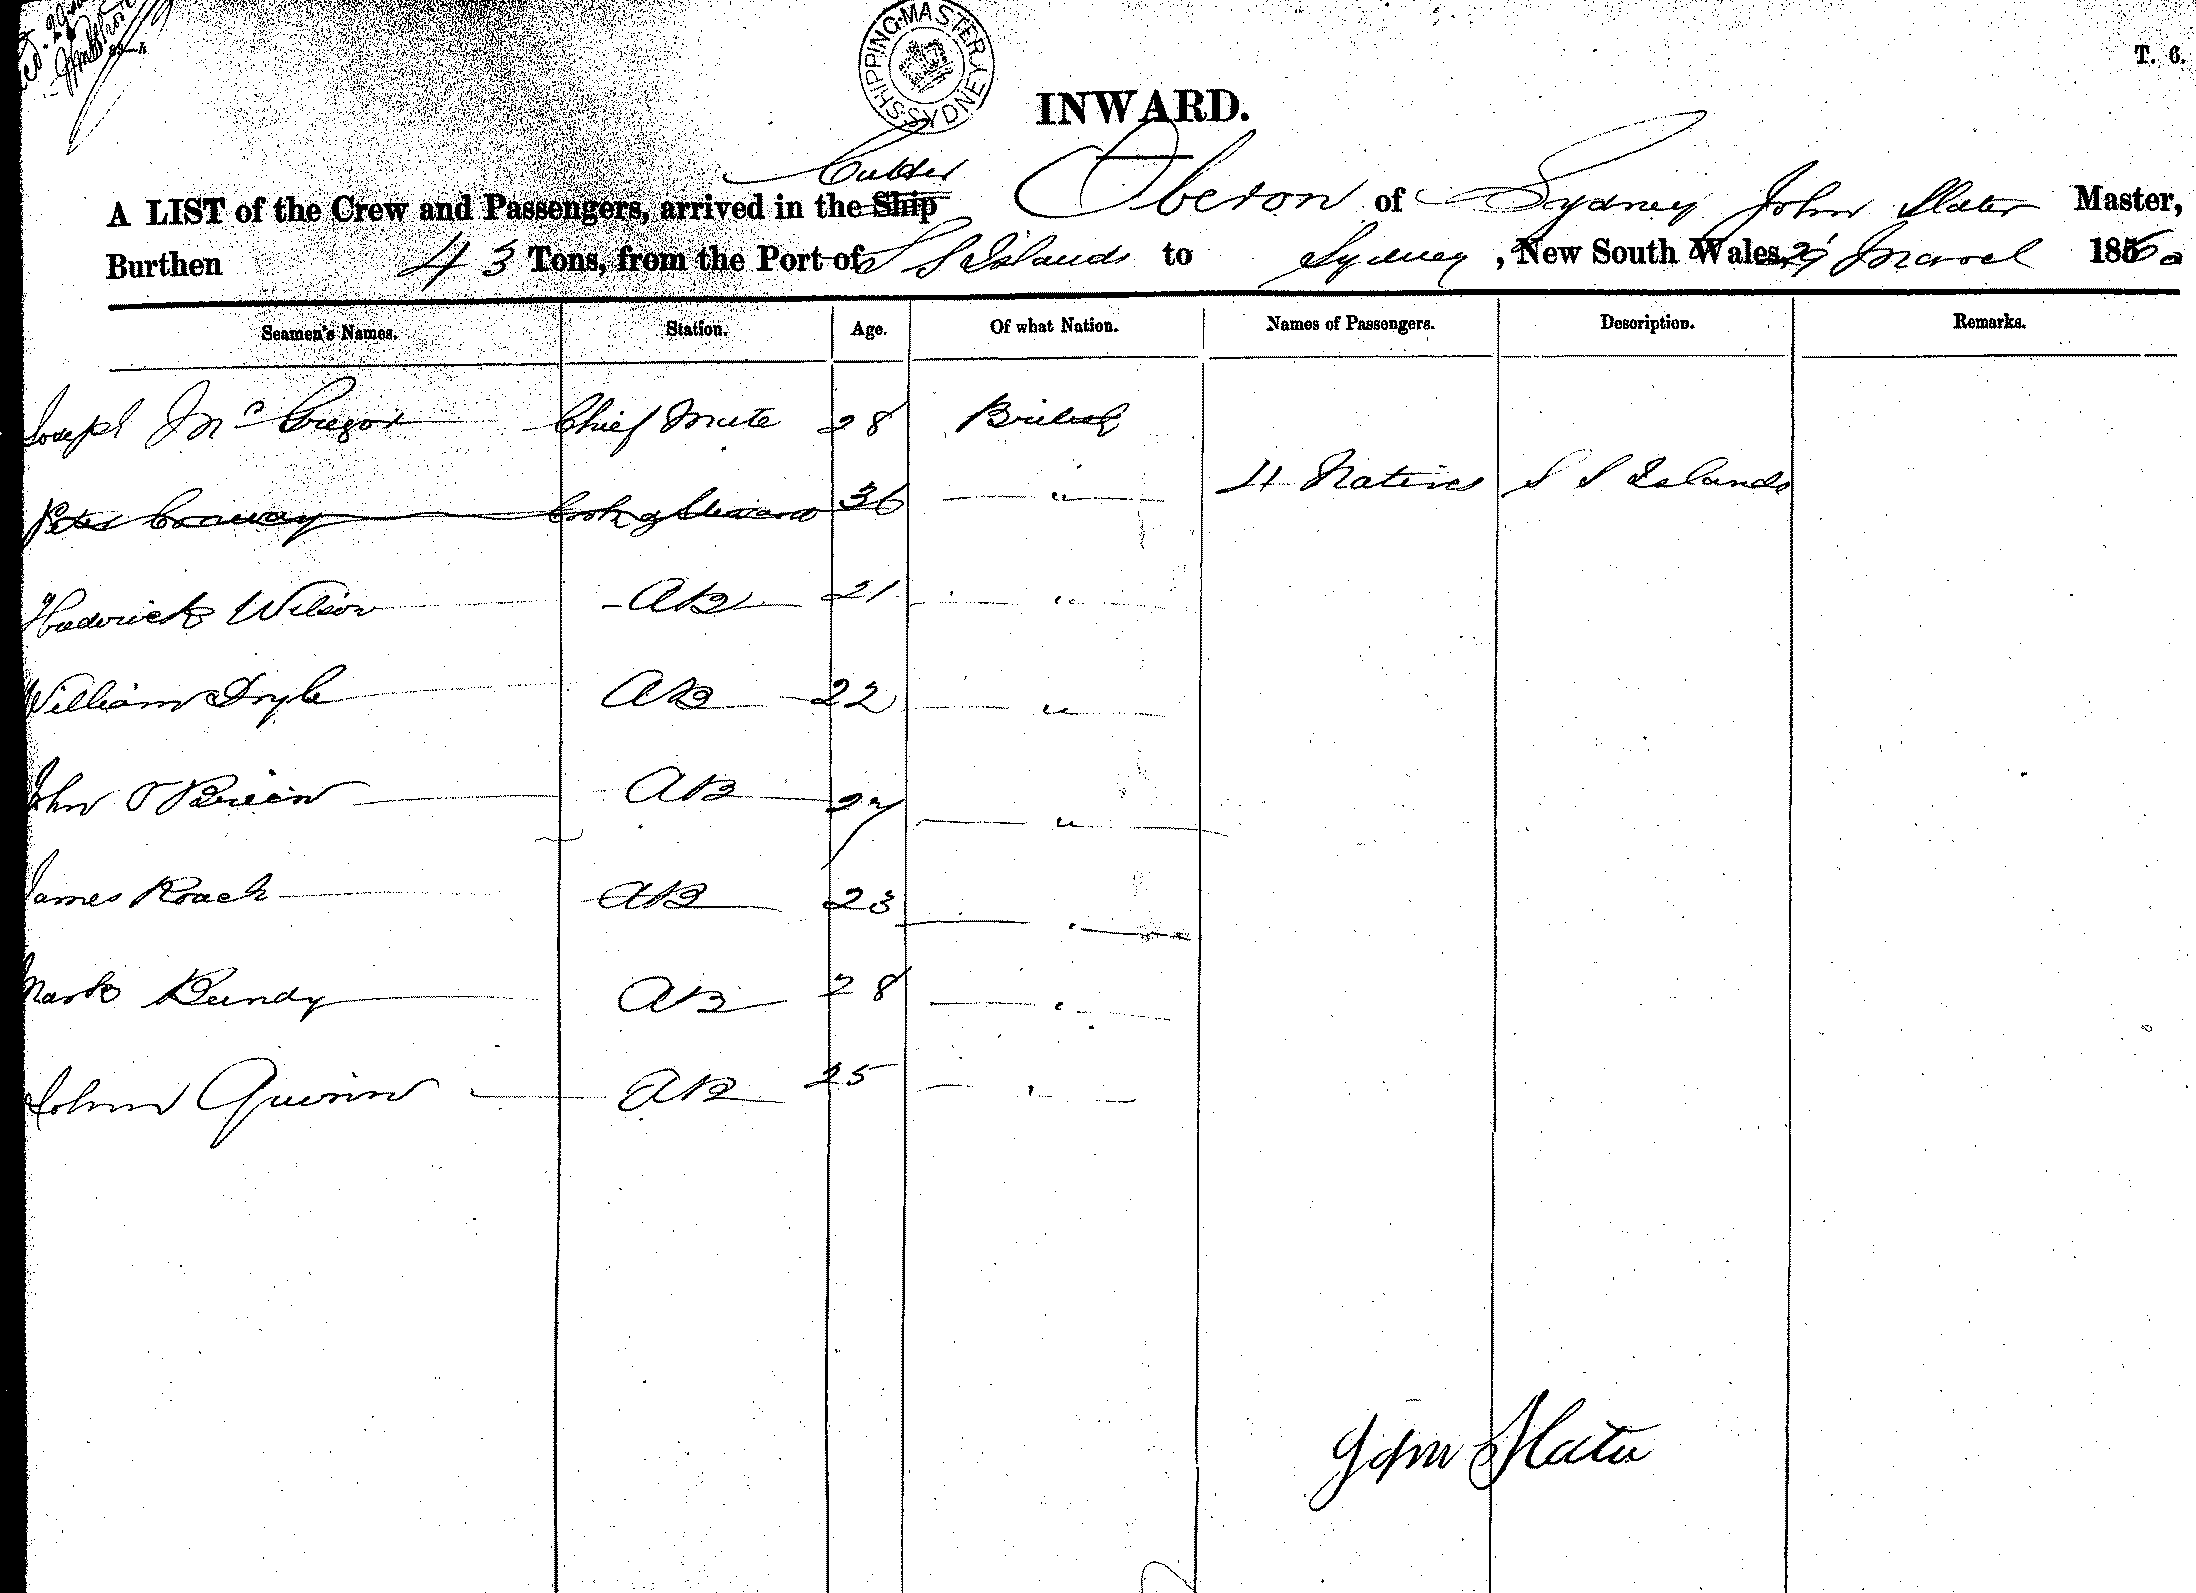 T. 6.
SHIPPING MASTER SYDNEY
INWARD.
Cutter
A LIST of the Crew and Passengers, arrived in the Ship Oberon of Sydney John Slater Master,
Burthen 43 Tons, from the Port of S S Islands to Sydney, New South Wales, 1860
Seamen's Names. Station. Age. Of what Nation. Names of Passengers. Description. Remarks.
Joseph Mc Gregor Chief Mate 28 British
Peter Conway Cook & Steward 36 " 4 Natives S S Islands
Wilson AB 21 "
William Doyle AB 22 "
John O'Brien AB 27 "
James Roach AB 23 "
Mark Bundy AB 28 "
John Quinn AB 25 "
John Slater